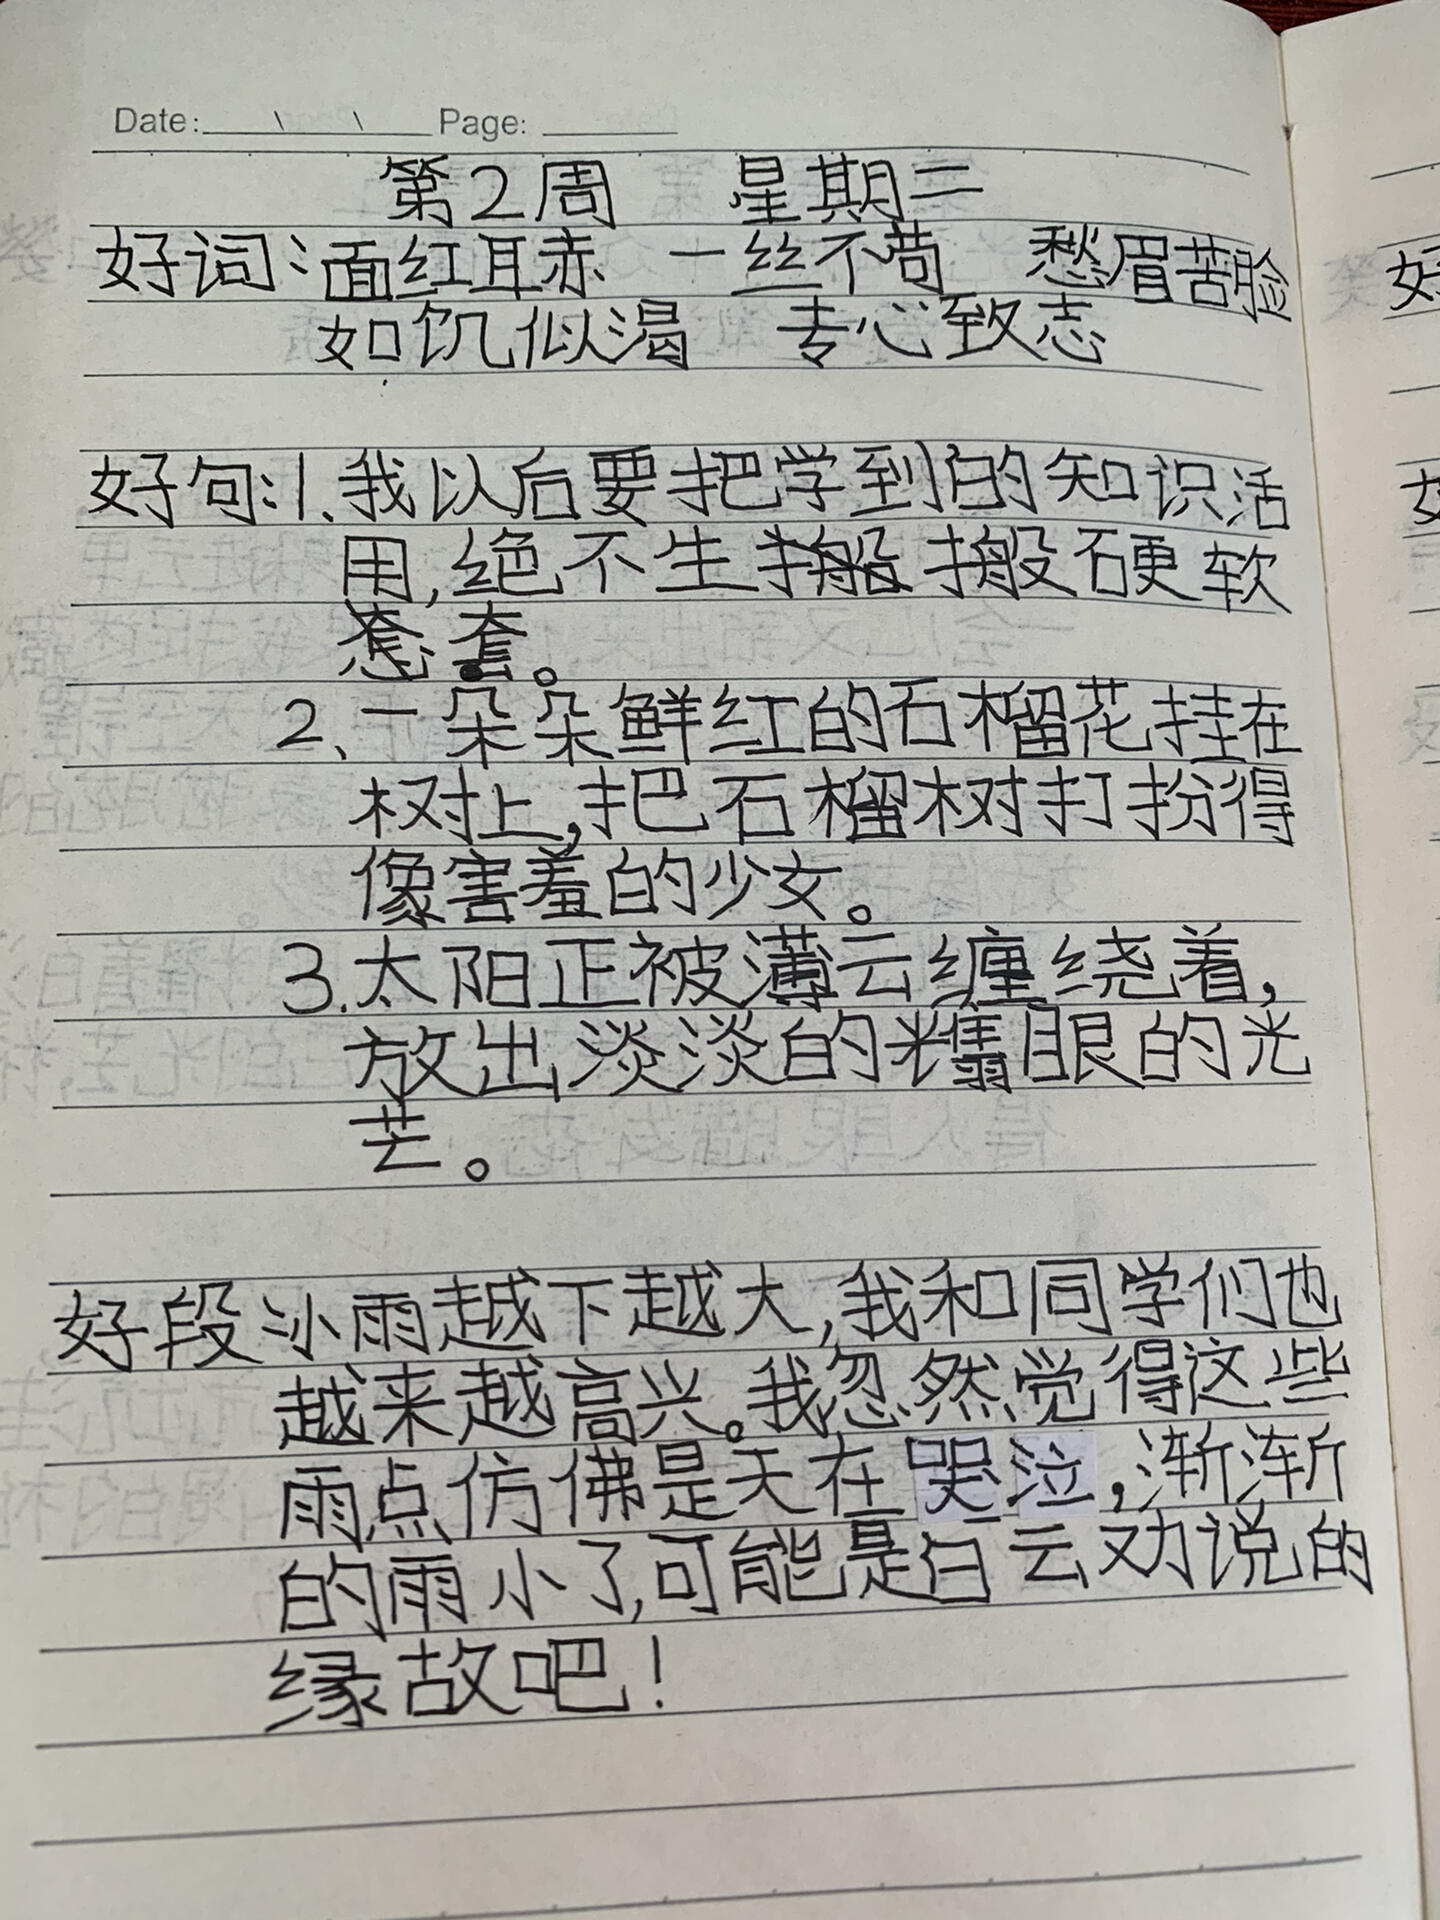 Date: \ \ Page:
第2周 星期二
好词:面红耳赤 一丝不苟 愁眉苦脸
如饥似渴 专心致志
好句:1.我以后要把学到的知识活
用,绝不生搬硬软
套。
2、一朵朵鲜红的石榴花挂在
树上,把石榴树打扮得
像害羞的少女。
3.太阳正被薄云缠绕着,
放出淡淡的耀眼的光
芒。
好段:小雨越下越大,我和同学们也
越来越高兴。我忽然觉得这些
雨点仿佛是天在哭泣,渐渐
的雨小了,可能是白云劝说的
缘故吧!
好
好